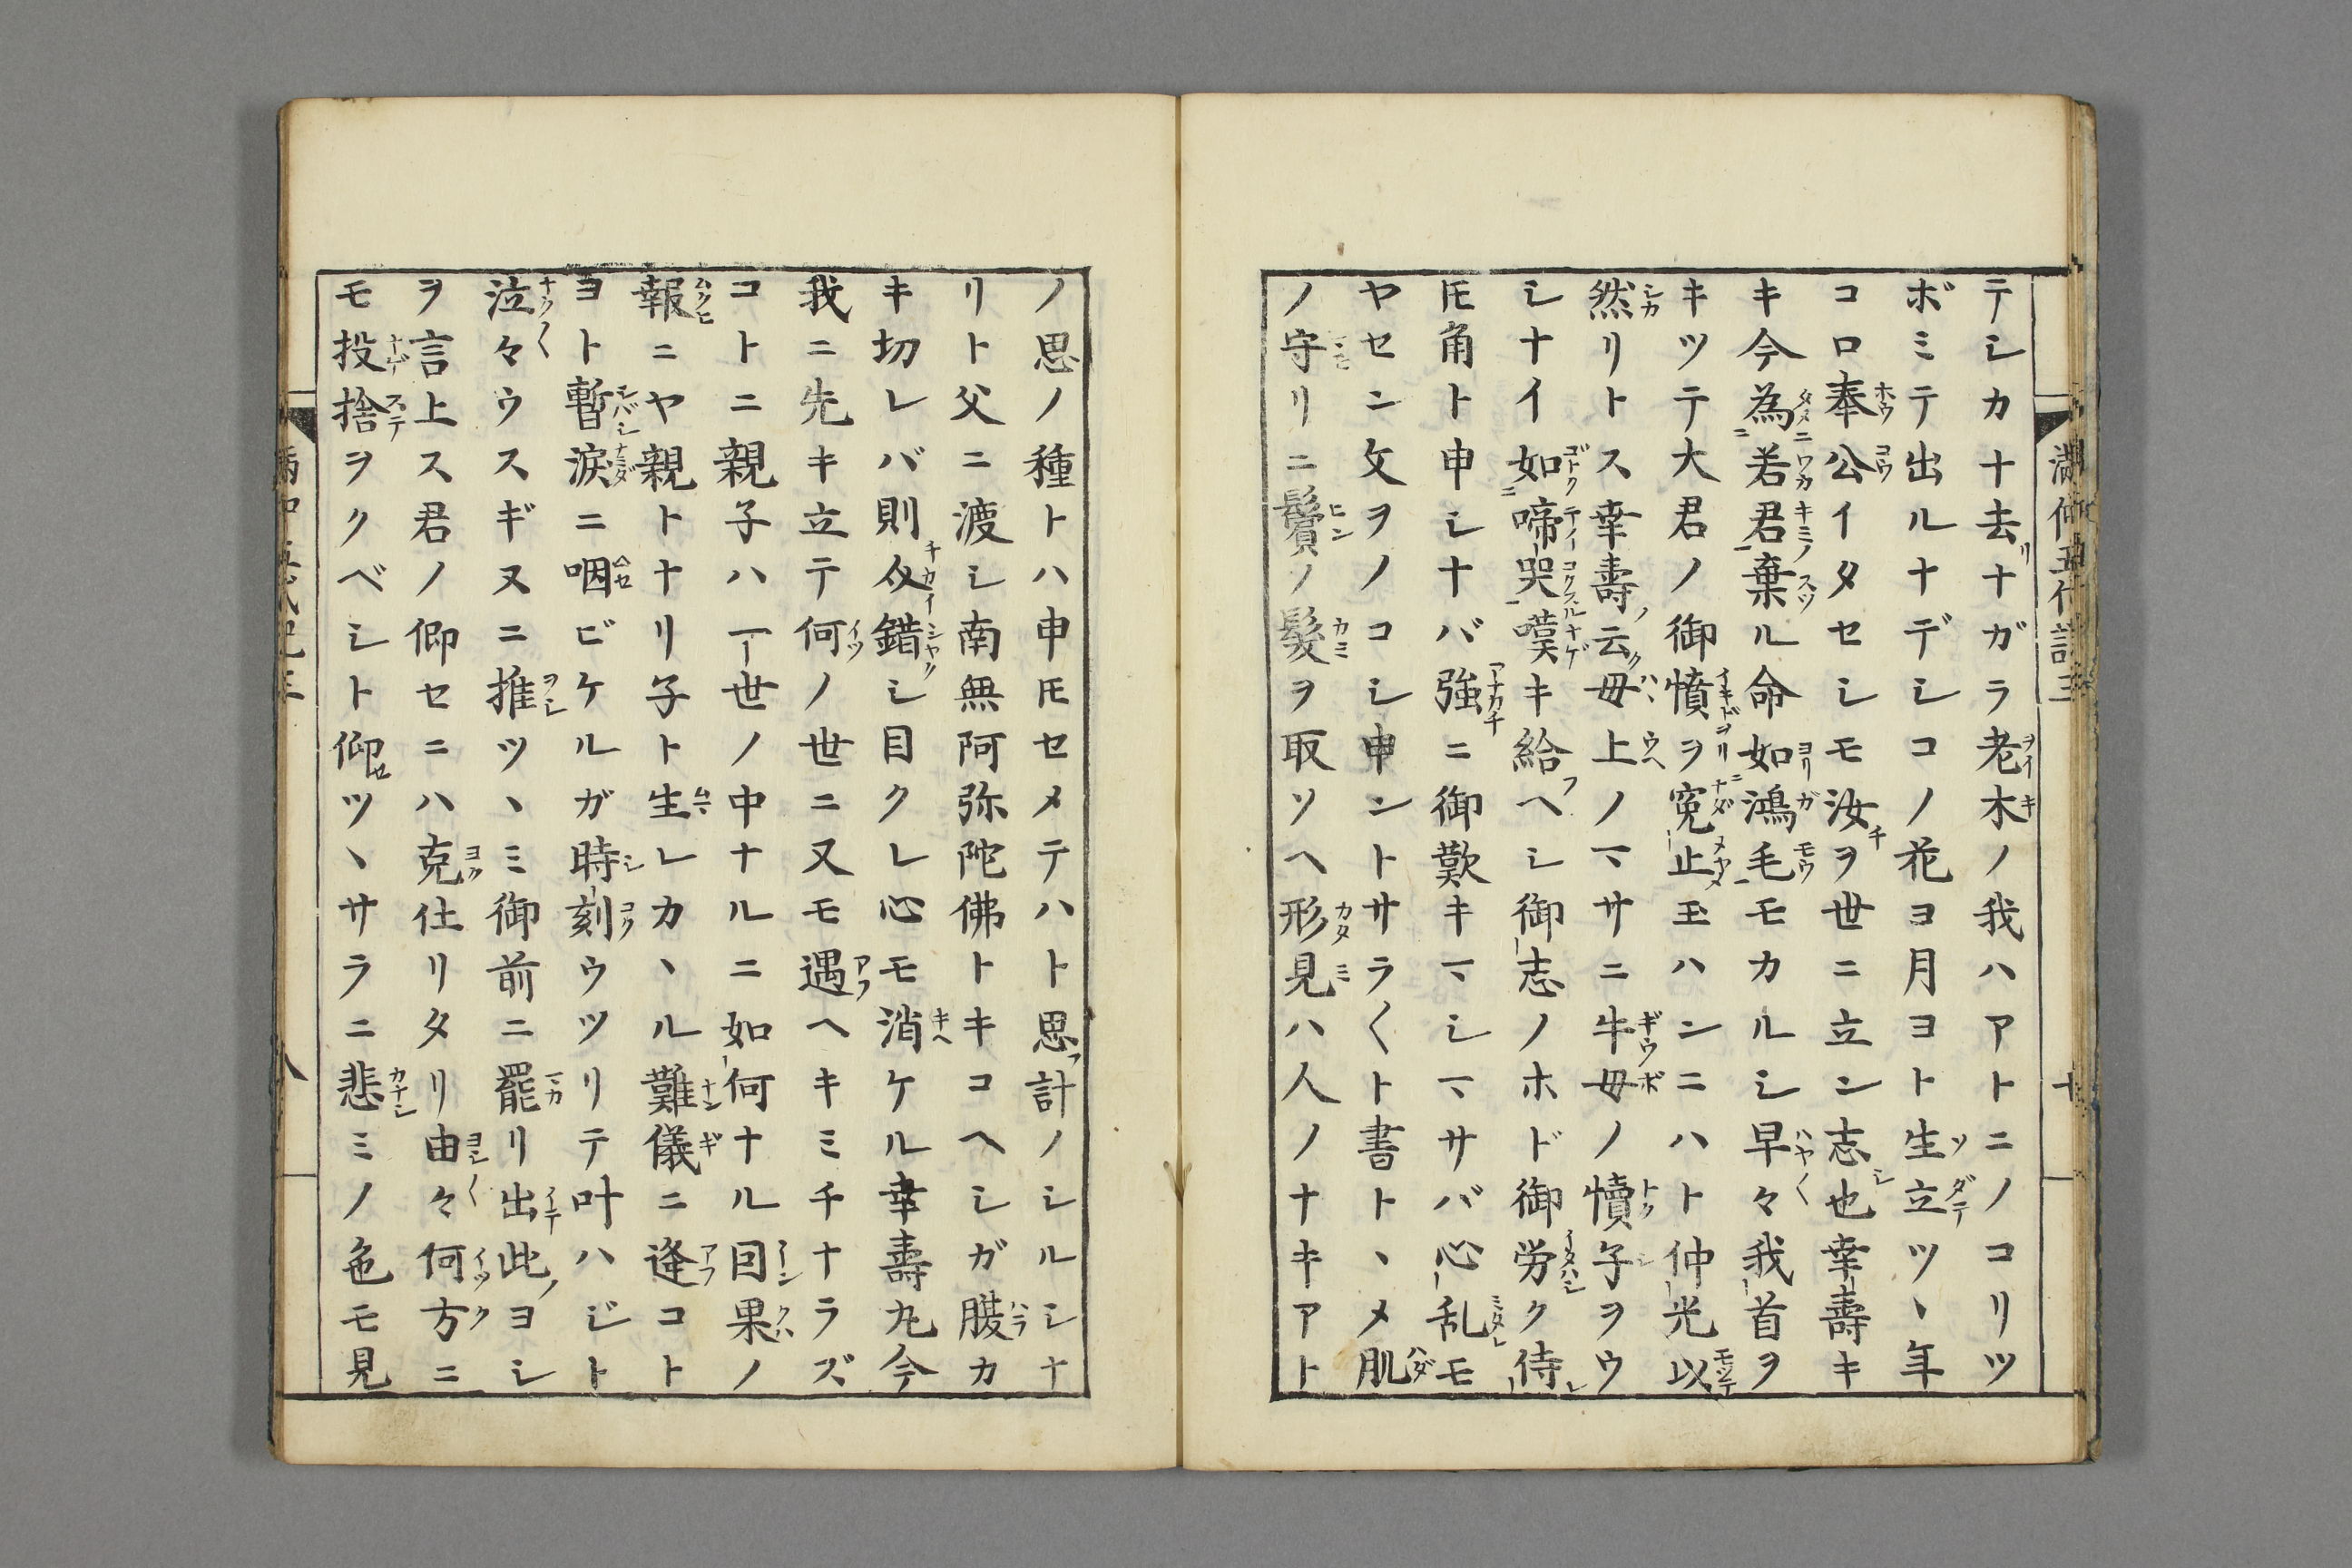 テシカナ去リナガラ老木ノ我ハアトニノコリツ
ボミテ出ルナデシコノ花ヨ月ヨト生立ツヽ年
コロ奉公イタセシモ汝ヲ世ニ立ン志也幸壽キ
キ今為若君棄ル命如鴻毛モカルシ早々我首ヲ
キツテ大君ノ御憤ヲ宛止玉ハンニハト仲光以
然リトス幸壽云ク母上ノマサニ牛母ノ犢子ヲウ
シナイ如啼哭嘆キ給ヘシ御志ノホド御労ク侍
ヒ角ト申シナバ強ニ御歎キマシマサバ心乱モ
ヤセン文ヲノコシ申ントサラ〱ト書トヽメ肌
ノ守リニ鬢ノ髪ヲ取ソヘ形見ハ人ノナキアト
ノ思ノ種トハ申ヒセメテハト思計ノシルシナ
リト父ニ渡シ南無阿弥陀佛トキコヘシガ腹カ
キ切レバ則介錯シ目クレ心モ消ケル幸壽丸今
我ニ先キ立テ何ノ世ニ又モ遇ヘキミチナラズ
コトニ親子ハ一世ノ中ナルニ如何ナル因果ノ
報ニヤ親トナリ子ト生レカヽル難儀ニ逢コト
ヨト暫涙ニ咽ビケルガ時刻ウツリテ叶ハジト
泣々ウスギヌニ推ツヽミ御前ニ罷リ出此ヨシ
ヲ言上ス君ノ仰セニハ克仕リタリ由々何方ニ
モ投捨ヲクベシト仰ツヽサラニ悲ミノ色モ見